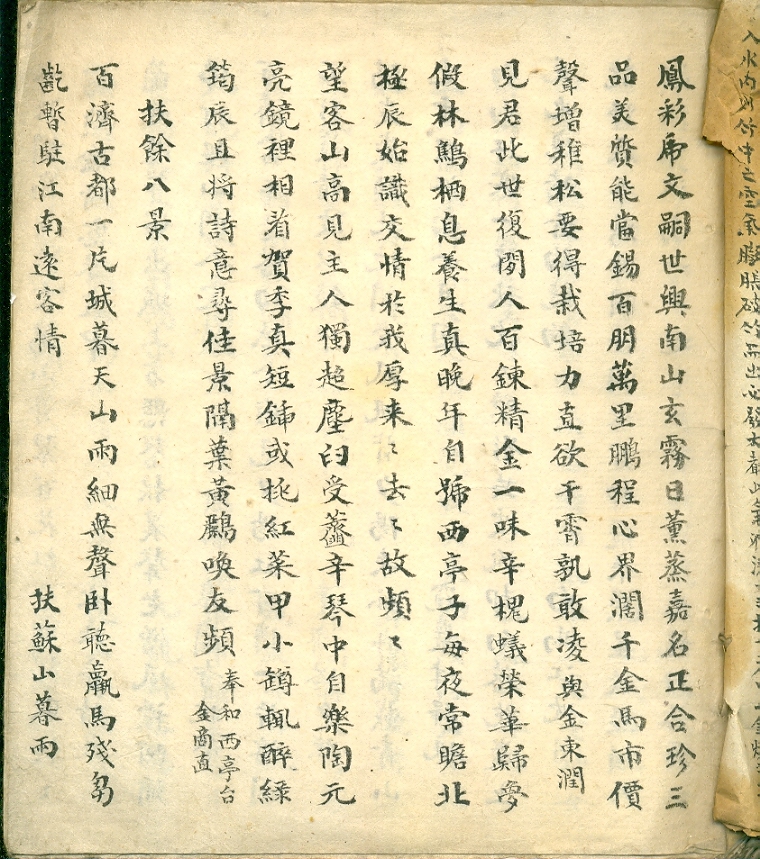 入水內則竹中之空氣膨脹破竹而出必發大聲此氣
鳳彩乕文嗣世與南山玄霧日薰蒸嘉名正合珍三
品美質能當錫百朋萬里鵬程心界濶千金馬市價
聲增稚松要得栽培力直欲干霄孰敢凌與金東潤
見君此世復閒人百鍊精金一味辛槐蟻榮華歸夢
假林鷦栖息養生真晚年自號西亭子每夜常瞻北
極辰始識交情於我厚来〻去〻故頻〻
望客山高見主人獨超塵臼受虀辛琴中自樂陶元
亮鏡裡相看賀季真短鍤或挑紅菜甲小罇輒醉綠
筠辰且将詩意尋佳景隔葉黃鸝喚友頻 奉和西亭台
金商直
扶餘八景
百濟古都一片城暮天山雨細無聲卧聽羸馬殘芻
齕暫駐江南遠客情 扶蘇山暮雨